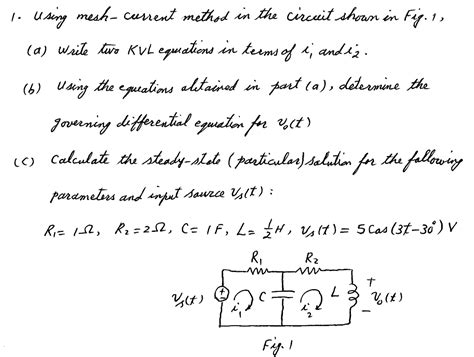 1. Using mesh-current method in the circuit shown in Fig. 1,
(a) Write two KVL equations in terms of i₁ and i₂.
(b) Using the equations obtained in part (a), determine the
governing differential equation for v₀(t)
(c) Calculate the steady-state (particular) solution for the following
parameters and input source vₛ(t):
R₁ = 1Ω, R₂ = 2Ω, C = 1F, L = ½H, vₛ(t) = 5 Cos(3t-30°) V
R₁ R₂
vₛ(t) + - i₁ C i₂ L + v₀(t) -
Fig. 1